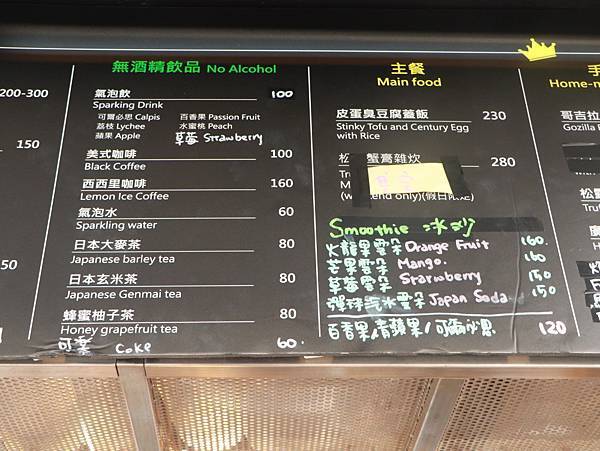 200-300
150
50
無酒精飲品 No Alcohol
氣泡飲 100
Sparking Drink
可爾必思 Calpis 百香果 Passion Fruit
荔枝 Lychee 水蜜桃 Peach
蘋果 Apple 草莓 Strawberry
美式咖啡 100
Black Coffee
西西里咖啡 160
Lemon Ice Coffee
氣泡水 60
Sparkling water
日本大麥茶 80
Japanese barley tea
日本玄米茶 80
Japanese Genmai tea
蜂蜜柚子茶 80
Honey grapefruit tea
可樂 Coke 60.
主餐
Main food
皮蛋臭豆腐蓋飯 230
Stinky Tofu and Century Egg
with Rice
松 蟹膏雜炊 280
Tru
M
(w end only)(假日限定)
Smoothie 冰沙
火龍果雲朵 Orange Fruit 160.
芒果雲朵 Mango. 160
草莓雲朵 Strawberry 150
彈珠汽水雲朵 Japan Soda 150
百香果/青蘋果/可爾必思 120
手
Home-m
哥吉拉
Gozilla
松露
Truf